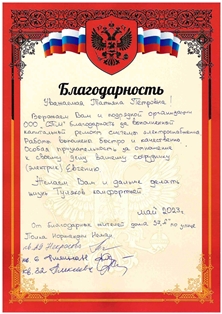 Благодарность
Уважаемая Татьяна Петровна!
Выражаем Вам и подрядной организации
ООО благодарность за выполненный
капитальный ремонт системы электроснабжения
Работа выполнена быстро и качественно
Особая признательность за отношение
к своему делу Вашему сотруднику
(электрик) Евгению.
Желаем Вам и дальше делать
жизнь Туляков комфортней
май 2023г.
От благодарных жителей дома по улице
кв.
кв. 6
кв. 32 Алексеева